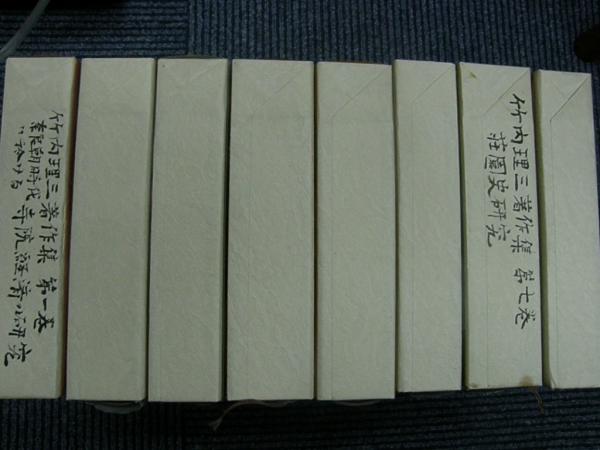 竹内理三著作集 第一巻
奈良朝時代
に於ける 寺院経済の研究
竹内理三著作集 第七巻
荘園史研究